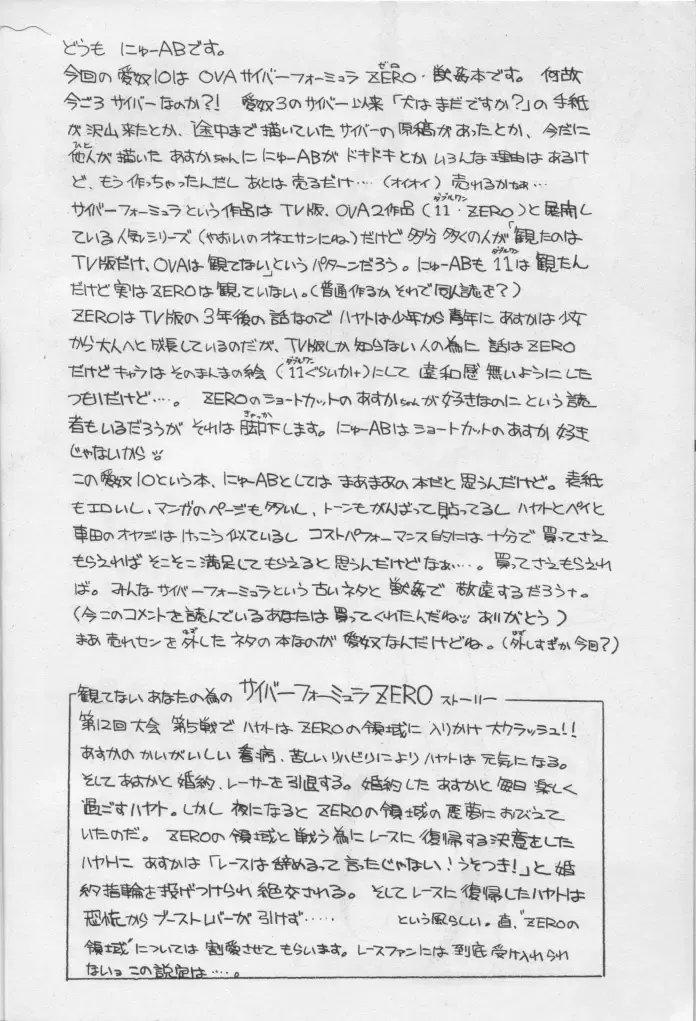 どうも にゅーABです。
今回の愛奴10は OVAサイバーフォーミュラ ZERO・獣姦本です。 何故
今ごろサイバーなのか?! 愛奴3のサイバー以来「犬はまだですか?」の手紙
が沢山来たとか、途中まで描いていたサイバーの原稿があったとか、今だに
他人が描いた あすかちゃんに にゅーABが ドキドキとか いろんな理由はあるけ
ど、もう作っちゃったんだし あとは売るだけ…(オイオイ) 売れるかなぁ…
サイバーフォーミュラという作品は TV版、OVA2作品(11・ZERO)と展開し
ている人気シリーズ(やおいのオネエサンにね)だけど多分 多くの人が「観たのは
TV版だけ、OVAは観てない」というパターンだろう。にゅーABも 11は観たん
だけど実はZEROは観ていない。(普通作るか それで同人誌を?)
ZEROはTV版の3年後の話なのでハヤトは少年から青年に あすかは少女
から大人へと成長しているのだが、TV版しか知らない人の為に 話はZERO
だけどキャラはそのまんまの絵(11ぐらいか+)にして 違和感 無いようにした
つもりだけど…。 ZEROのショートカットのあすかちゃんが好きなのに という読
者もいるだろうが それは 脚下します。にゅーABはショートカットのあすか 好き
じゃないから
この愛奴10という本、にゅーABとしては まあまあの本だと思うんだけど。表紙
もエロいし、マンガのページも多いし、トーンもがんばって貼ってるし ハヤトとペイと
車田のオヤジは けっこう似ているし コストパフォーマンス的には十分で買ってさえ
もらえれば そこそこ満足してもらえると思うんだけどなぁ…。 買ってさえもらえれ
ば。 みんなサイバーフォーミュラという古いネタと獣姦で 敬遠するだろナ。
(今このコメントを読んでいるあなたは買ってくれたんだね ありがとう)
まあ 売れセンを外した ネタの本なのが 愛奴なんだけどね。(外しすぎか 今回?)
観てないあなたの為の サイバーフォーミュラ ZERO ストーリー
第12回大会 第5戦で ハヤトは ZEROの領域に入りかけ 大クラッシュ!!
あすかのかいがいしい 看病、苦しいリハビリにより ハヤトは 元気になる。
そしてあすかと婚約、レーサーを引退する。婚約したあすかと毎日 楽しく
過ごすハヤト。しかし 夜になると ZEROの領域の悪夢におびえて
いたのだ。 ZEROの領域と戦う為にレースに復帰する決意をした
ハヤトに あすかは「レースは辞めるって言ったじゃない!うそつき!」と婚
約指輪を投げつけられ絶交される。 そしてレースに復帰したハヤトは
恐怖から ブーストレバーが引けず…… という風らしい。直、“ZEROの
領域”については 割愛させてもらいます。レースファンには 到底 受け入れられ
ない この設定は…。